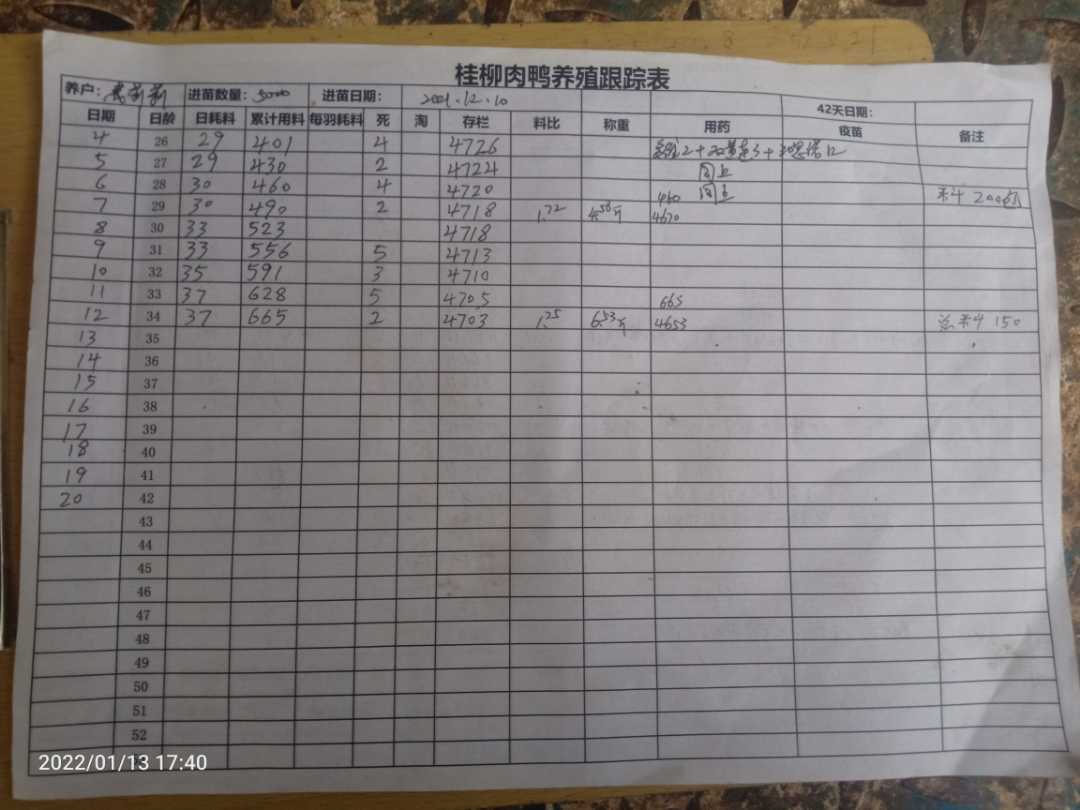 桂柳肉鸭养殖跟踪表
养户： 进苗数量：5000 进苗日期： 2021.12.10 42天日期：
日期 日龄 日耗料 累计用料 每羽耗料 死 淘 存栏 料比 称重 用药 疫苗 备注
4 26 29 401 4 4726
5 27 29 430 2 4724 同上
6 28 30 460 4 4720 同上
7 29 30 490 2 4718 1.72 4670 200包
8 30 33 523 4718
9 31 33 556 5 4713
10 32 35 591 3 4710
11 33 37 628 5 4705 665
12 34 37 665 2 4703 1.75 6.53斤 4653 150
13 35
14 36
15 37
16 38
17 39
18 40
19 41
20 42
43
44
45
46
47
48
49
50
51
52
2022/01/13 17:40